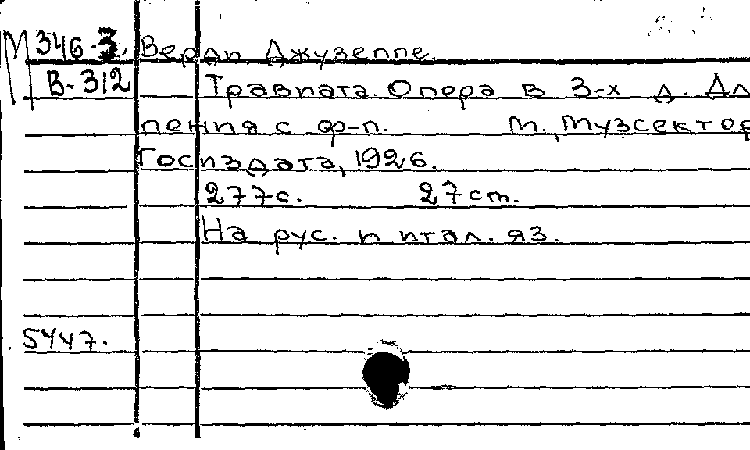 М 346-3. Верди Джузеппе
В-312 Травиата. Опера в 3-х д. Дл
пения с ф-п. М., Музсектор
Госиздата, 1926.
277с. 27 ст.
На рус. и итал. яз.
5447.